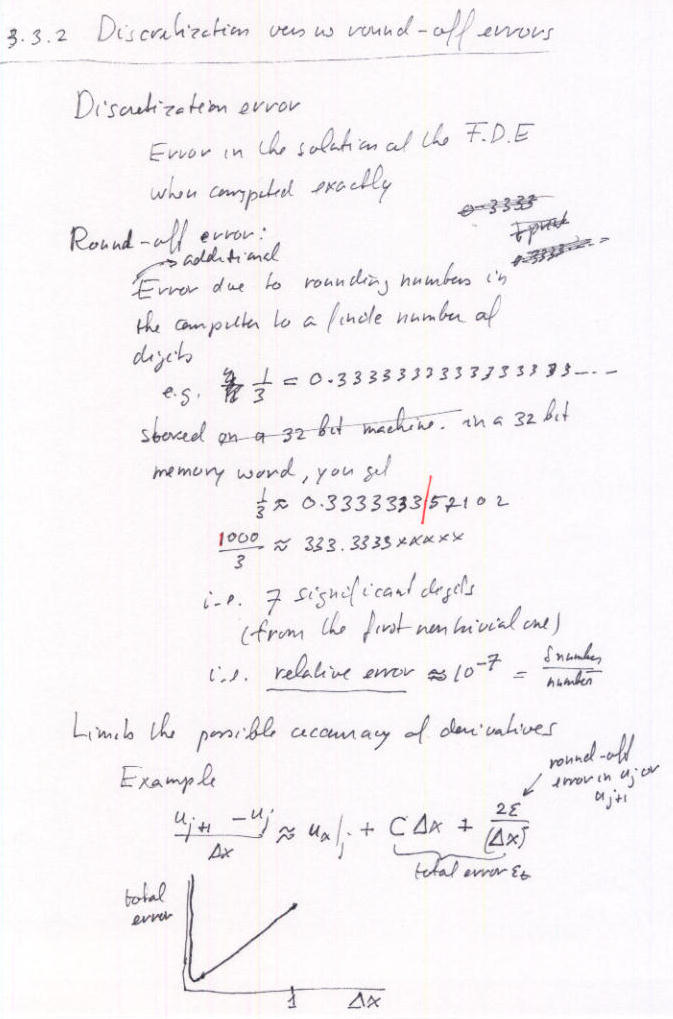 3.3.2 Discretization versus round-off errors
Discretization error
Error in the solution of the F.D.E
when computed exactly
0.3333
Round-off error:
additional
Error due to rounding numbers in
the computer to a finite number of
digits
e.g. 1/3 = 0.3333333333333333----
stored on a 32 bit machine. in a 32 bit
memory word, you get
1/3 ≈ 0.3333333|57102
1000/3 ≈ 333.3333xxxxx
i.e. 7 significant digits
(from the first nontrivial one)
i.e. relative error ≈ 10^-7 = δnumber/number
Limits the possible accuracy of derivatives
Example
round-off
error in uj or
uj+1
(uj+1 - uj)/Δx ≈ ux|j + CΔx + 2ε/(Δx)
total error εt
total
error
1 Δx